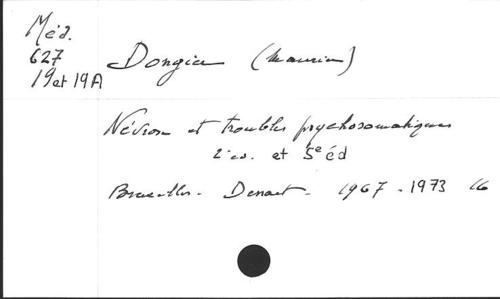 Méd.
627
19 et 19A
Dongier (Maurice)
Névroses et troubles psychosomatiques
2e éd. et 5e éd
Bruxelles - Dessart - 1967 - 1973 16